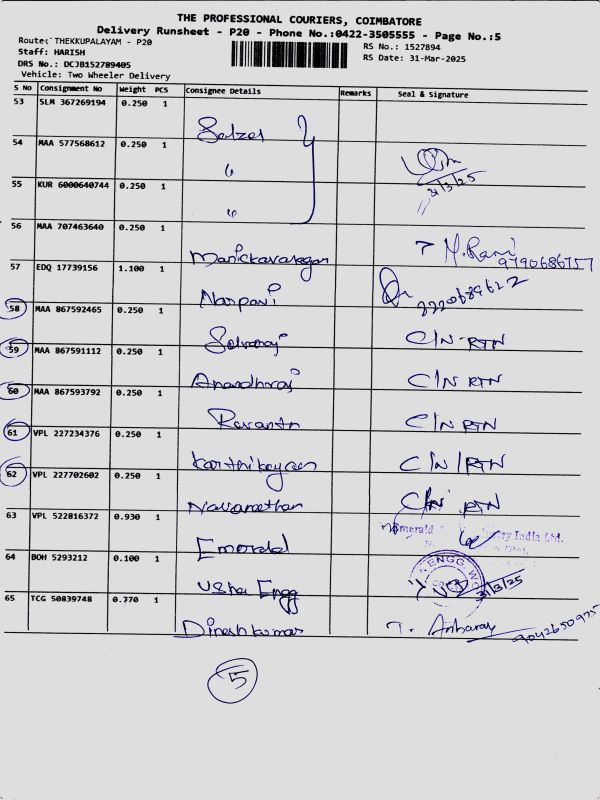 THE PROFESSIONAL COURIERS, COIMBATORE
Delivery Runsheet - P20 - Phone No.:0422-3505555 - Page No.:5
Route: THEKKUPALAYAM - P20
RS No.: 1527894
Staff: HARISH
RS Date: 31-Mar-2025
DRS No.: DCJB152789405
Vehicle: Two Wheeler Delivery
S No Consignment No Weight PCS Consignee Details Remarks Seal & Signature
53 SLM 367269194 0.250 1
54 MAA 577568612 0.250 1 "
31/3/25
55 KUR 6000640744 0.250 1 "
56 MAA 707463640 0.250 1 Manickavasagan M. Rani
9790686757
57 EDQ 17739156 1.100 1
58 MAA 867592465 0.250 1 Selvaraj C/N RTN
59 MAA 867591112 0.250 1 Anandhraj C/N RTN
60 MAA 867593792 0.250 1 C/N RTN
61 VPL 227234376 0.250 1 Karthikeyan C/N RTN
62 VPL 227702602 0.250 1 C/N RTN
63 VPL 522816372 0.930 1 Emerald
Emerald India Ltd.
64 BOH 5293212 0.100 1 Usha Engg
ENGG. WO
31/3/25
65 TCG 50839748 0.770 1 Dineshkumar
9042650975
5